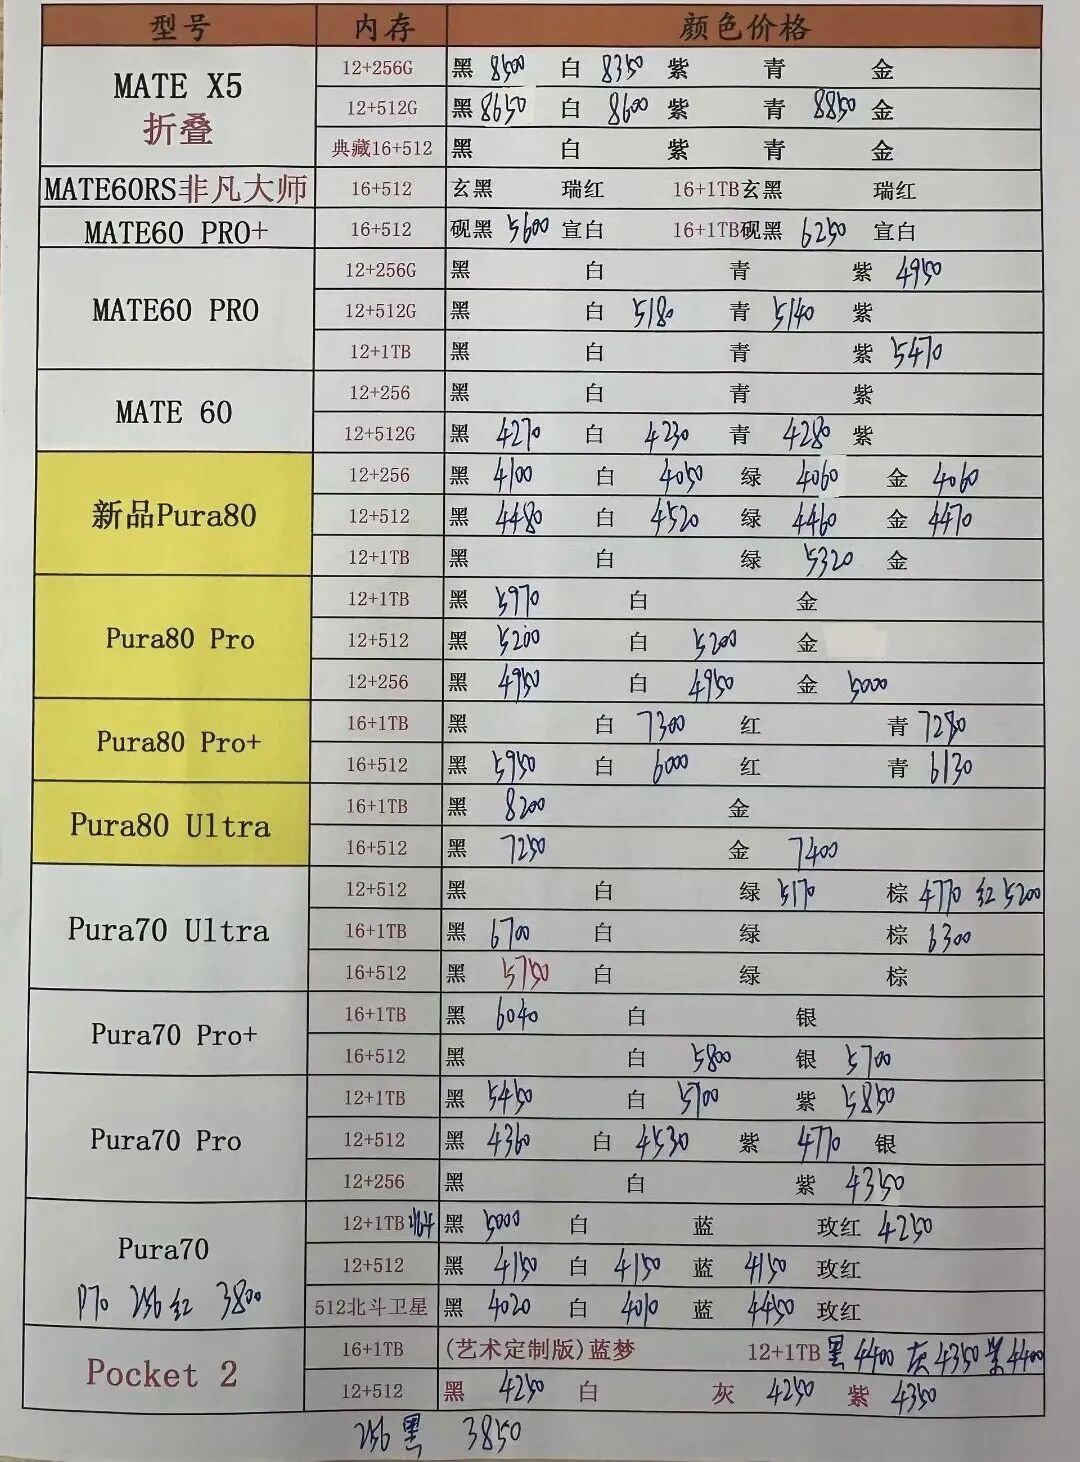 型号 内存 颜色价格
MATE X5 折叠 12+256G 黑 8500 白 8350 紫 青 金
12+512G 黑 8650 白 8600 紫 青 8850 金
典藏16+512 黑 白 紫 青 金
MATE60RS非凡大师 16+512 玄黑 瑞红 16+1TB玄黑 瑞红
MATE60 PRO+ 16+512 砚黑 5600 宣白 16+1TB砚黑 6250 宣白
MATE60 PRO 12+256G 黑 白 青 紫 4950
12+512G 黑 白 5180 青 5140 紫
12+1TB 黑 白 青 紫 5470
MATE 60 12+256 黑 白 青 紫
12+512G 黑 4270 白 4230 青 4280 紫
新品Pura80 12+256 黑 4100 白 4050 绿 4060 金 4060
12+512 黑 4480 白 4520 绿 4460 金 4470
12+1TB 黑 白 绿 5320 金
Pura80 Pro 12+1TB 黑 5970 白 金
12+512 黑 5200 白 5200 金
12+256 黑 4950 白 4950 金 5000
Pura80 Pro+ 16+1TB 黑 白 7300 红 青 7280
16+512 黑 5950 白 6000 红 青 6130
Pura80 Ultra 16+1TB 黑 8200 金
16+512 黑 7250 金 7400
Pura70 Ultra 12+512 黑 白 绿 5170 棕 4770 红 5200
16+1TB 黑 6700 白 绿 棕 6300
16+512 黑 5750 白 绿 棕
Pura70 Pro+ 16+1TB 黑 6040 白 银
16+512 黑 白 5800 银 5700
Pura70 Pro 12+1TB 黑 5450 白 5700 紫 5850
12+512 黑 4360 白 4530 紫 4770 银
12+256 黑 白 紫 4350
Pura70 12+1TB 黑 5000 白 蓝 玫红 4250
12+512 黑 4150 白 4150 蓝 4150 玫红
P70 256 红 3800 512北斗卫星 黑 4020 白 4010 蓝 4450 玫红
Pocket 2 16+1TB (艺术定制版)蓝梦 12+1TB 黑 4400 灰 4350 紫 4400
12+512 黑 4250 白 灰 4250 紫 4350
256 黑 3850